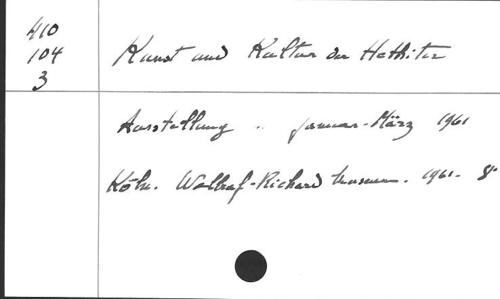 410
104
3
Kunst und Kultur der Hethiter
Ausstellung .. Januar-März 1961
Köln. Wallraf-Richard Museum. 1961. 8°